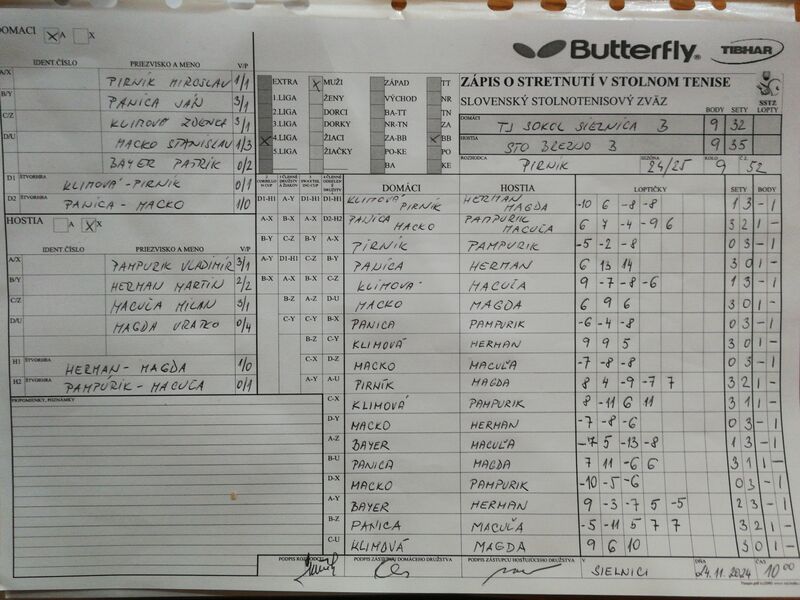 DOMACI X A X
Butterfly® TIBHAR
IDENT.ČÍSLO PRIEZVISKO A MENO V/P
A/X PIRNÍK MIROSLAV 1/1
B/Y PANICA JÁN 3/1
C/Z KLIMOVÁ ZDENKA 3/1
D/U MACKO STANISLAV 1/3
BAYER PATRIK 0/2
D1 ŠTVORHRA KLIMOVÁ-PIRNÍK 0/1
D2 ŠTVORHRA PANICA-MACKO 1/0
HOSTIA A X X
IDENT.ČÍSLO PRIEZVISKO A MENO V/P
A/X PAMPURIK VLADIMÍR 3/1
B/Y HERMAN MARTIN 2/2
C/Z MACUĽA MILAN 3/1
D/U MAGDA VRATKO 0/4
H1 ŠTVORHRA HERMAN-MAGDA 1/0
H2 ŠTVORHRA PAMPÚRIK-MACUĽA 0/1
PRIPOMIENKY, POZNÁMKY
EXTRA X MUŽI ZÁPAD TT
1.LIGA ŽENY VÝCHOD NR
2.LIGA DORCI BA-TT TN
3.LIGA DORKY NR-TN ZA
X 4.LIGA ŽIACI ZA-BB X BB
5.LIGA ŽIAČKY PO-KE PO
BA KE
ZÁPIS O STRETNUTÍ V STOLNOM TENISE
SLOVENSKÝ STOLNOTENISOVÝ ZVÄZ
SSTZ
BODY SETY LOPTY
DOMÁCI TJ SOKOL SIELNICA B 9 32
HOSTIA STO BREZNO B 9 35
ROZHODCA PIRNÍK SEZÓNA 24/25 KOLO 9 Č.Z. 52
DOMÁCI HOSTIA LOPTIČKY SETY BODY
D1-H1 A-Y D1-H1 D1-H1 KLIMOVÁ PIRNÍK HERMAN MAGDA -10 6 -8 -8 1 3 - 1
A-X B-X A-X D2-H2 PANICA MACKO PAMPURIK MACUĽA 6 7 -4 -9 6 3 2 1 -
B-Y C-Z B-Y A-X PIRNÍK PAMPURIK -5 -2 -8 0 3 - 1
A-Y D1-H1 C-Z B-Y PANICA HERMAN 6 13 14 3 0 1 -
B-X A-X B-X C-Z KLIMOVÁ MACUĽA 9 -7 -8 -6 1 3 - 1
B-Z A-Z D-U MACKO MAGDA 6 9 6 3 0 1 -
C-Y C-Y B-X PANICA PAMPURIK -6 -4 -8 0 3 - 1
B-Z C-Y KLIMOVÁ HERMAN 9 9 5 3 0 1 -
C-X D-Z MACKO MACUĽA -7 -8 -8 0 3 - 1
A-Y A-U PIRNÍK MAGDA 8 4 -9 -7 7 3 2 1 -
C-X KLIMOVÁ PAMPURIK 8 -11 6 11 3 1 1 -
D-Y MACKO HERMAN -7 -8 -6 0 3 - 1
A-Z BAYER MACUĽA -7 5 -13 -8 1 3 - 1
B-U PANICA MAGDA 7 11 -6 6 3 1 1 -
D-X MACKO PAMPURIK -10 -5 -6 0 3 - 1
A-Y BAYER HERMAN 9 -3 -7 5 -5 2 3 - 1
B-Z PANICA MACUĽA -5 -11 5 7 7 3 2 1 -
C-U KLIMOVÁ MAGDA 9 6 10 3 0 1 -
PODPIS ROZHODCU PODPIS ZÁSTUPCU DOMÁCEHO DRUŽSTVA PODPIS ZÁSTUPCU HOSŤUJÚCEHO DRUŽSTVA V SIELNICI DŇA 24.11.2024 ČAS 10 00